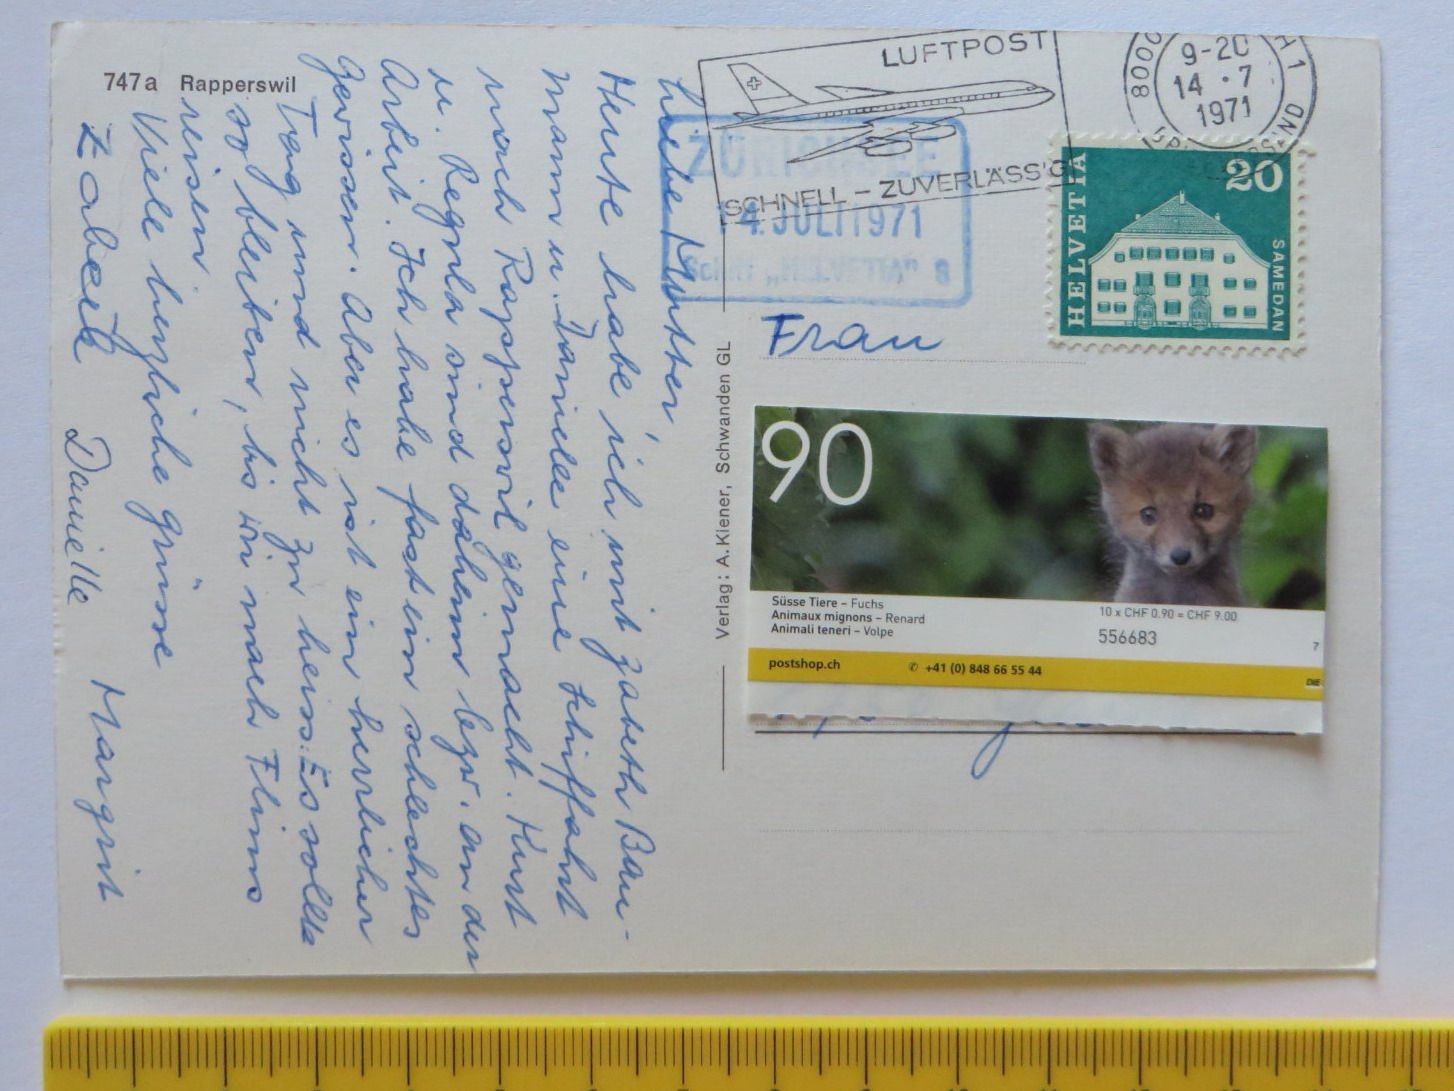 747a Rapperswil
Liebe Mutter,
Heute habe ich mit Zabeth Bau-
mann u. Danielle eine Schiffahrt
nach Rapperswil gemacht. Kurt
u. Regula sind daheim bezw. an der
Arbeit. Ich habe fast ein schlechtes
Gewissen. Aber es ist ein herrlicher
Tag und nicht zu heiss. Es sollte
so bleiben, bis wir nach Flims
reisen.
Viele herzliche Grüsse
Zabeth Danielle Margrit
Verlag: A. Kiener, Schwanden GL
LUFTPOST
SCHNELL – ZUVERLÄSSIG
8000
9-20
14.7
1971
ZÜRICHSEE
14. JULI 1971
Schiff „HELVETIA" 8
HELVETIA
20
SAMEDAN
Frau
90
Süsse Tiere – Fuchs
Animaux mignons – Renard
Animali teneri – Volpe
10 x CHF 0.90 = CHF 9.00
556683
7
postshop.ch
✆ +41 (0) 848 66 55 44
DIE